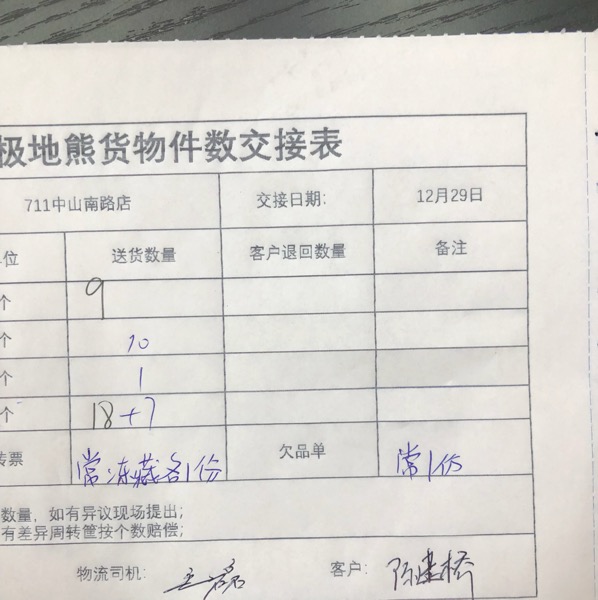 极地熊货物件数交接表
711中山南路店 交接日期: 12月29日
位 送货数量 客户退回数量 备注
个 9
个 10
个 1
个 18+7
票 常冻藏各1份 欠品单 常1份
数量，如有异议现场提出;
有差异周转筐按个数赔偿;
物流司机: 王磊 客户: 陈建桥